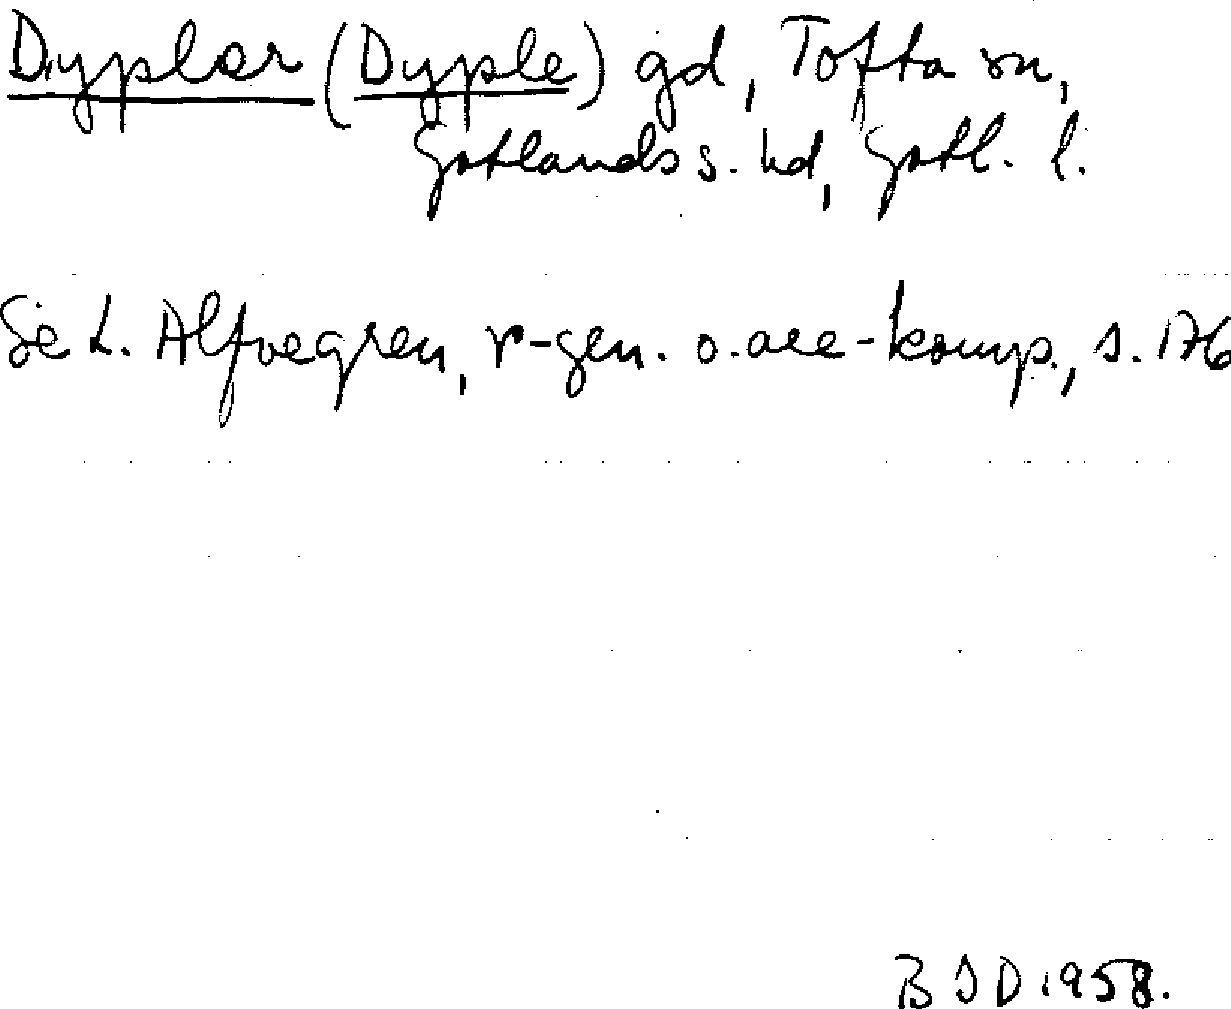 Dyplar (Dyple) gd, Tofta sn,
Gotlands s. hd, Gotl. l.
Se L. Alfvegren, r-gen. o. ace-komp., s. 176
BSD 1958.